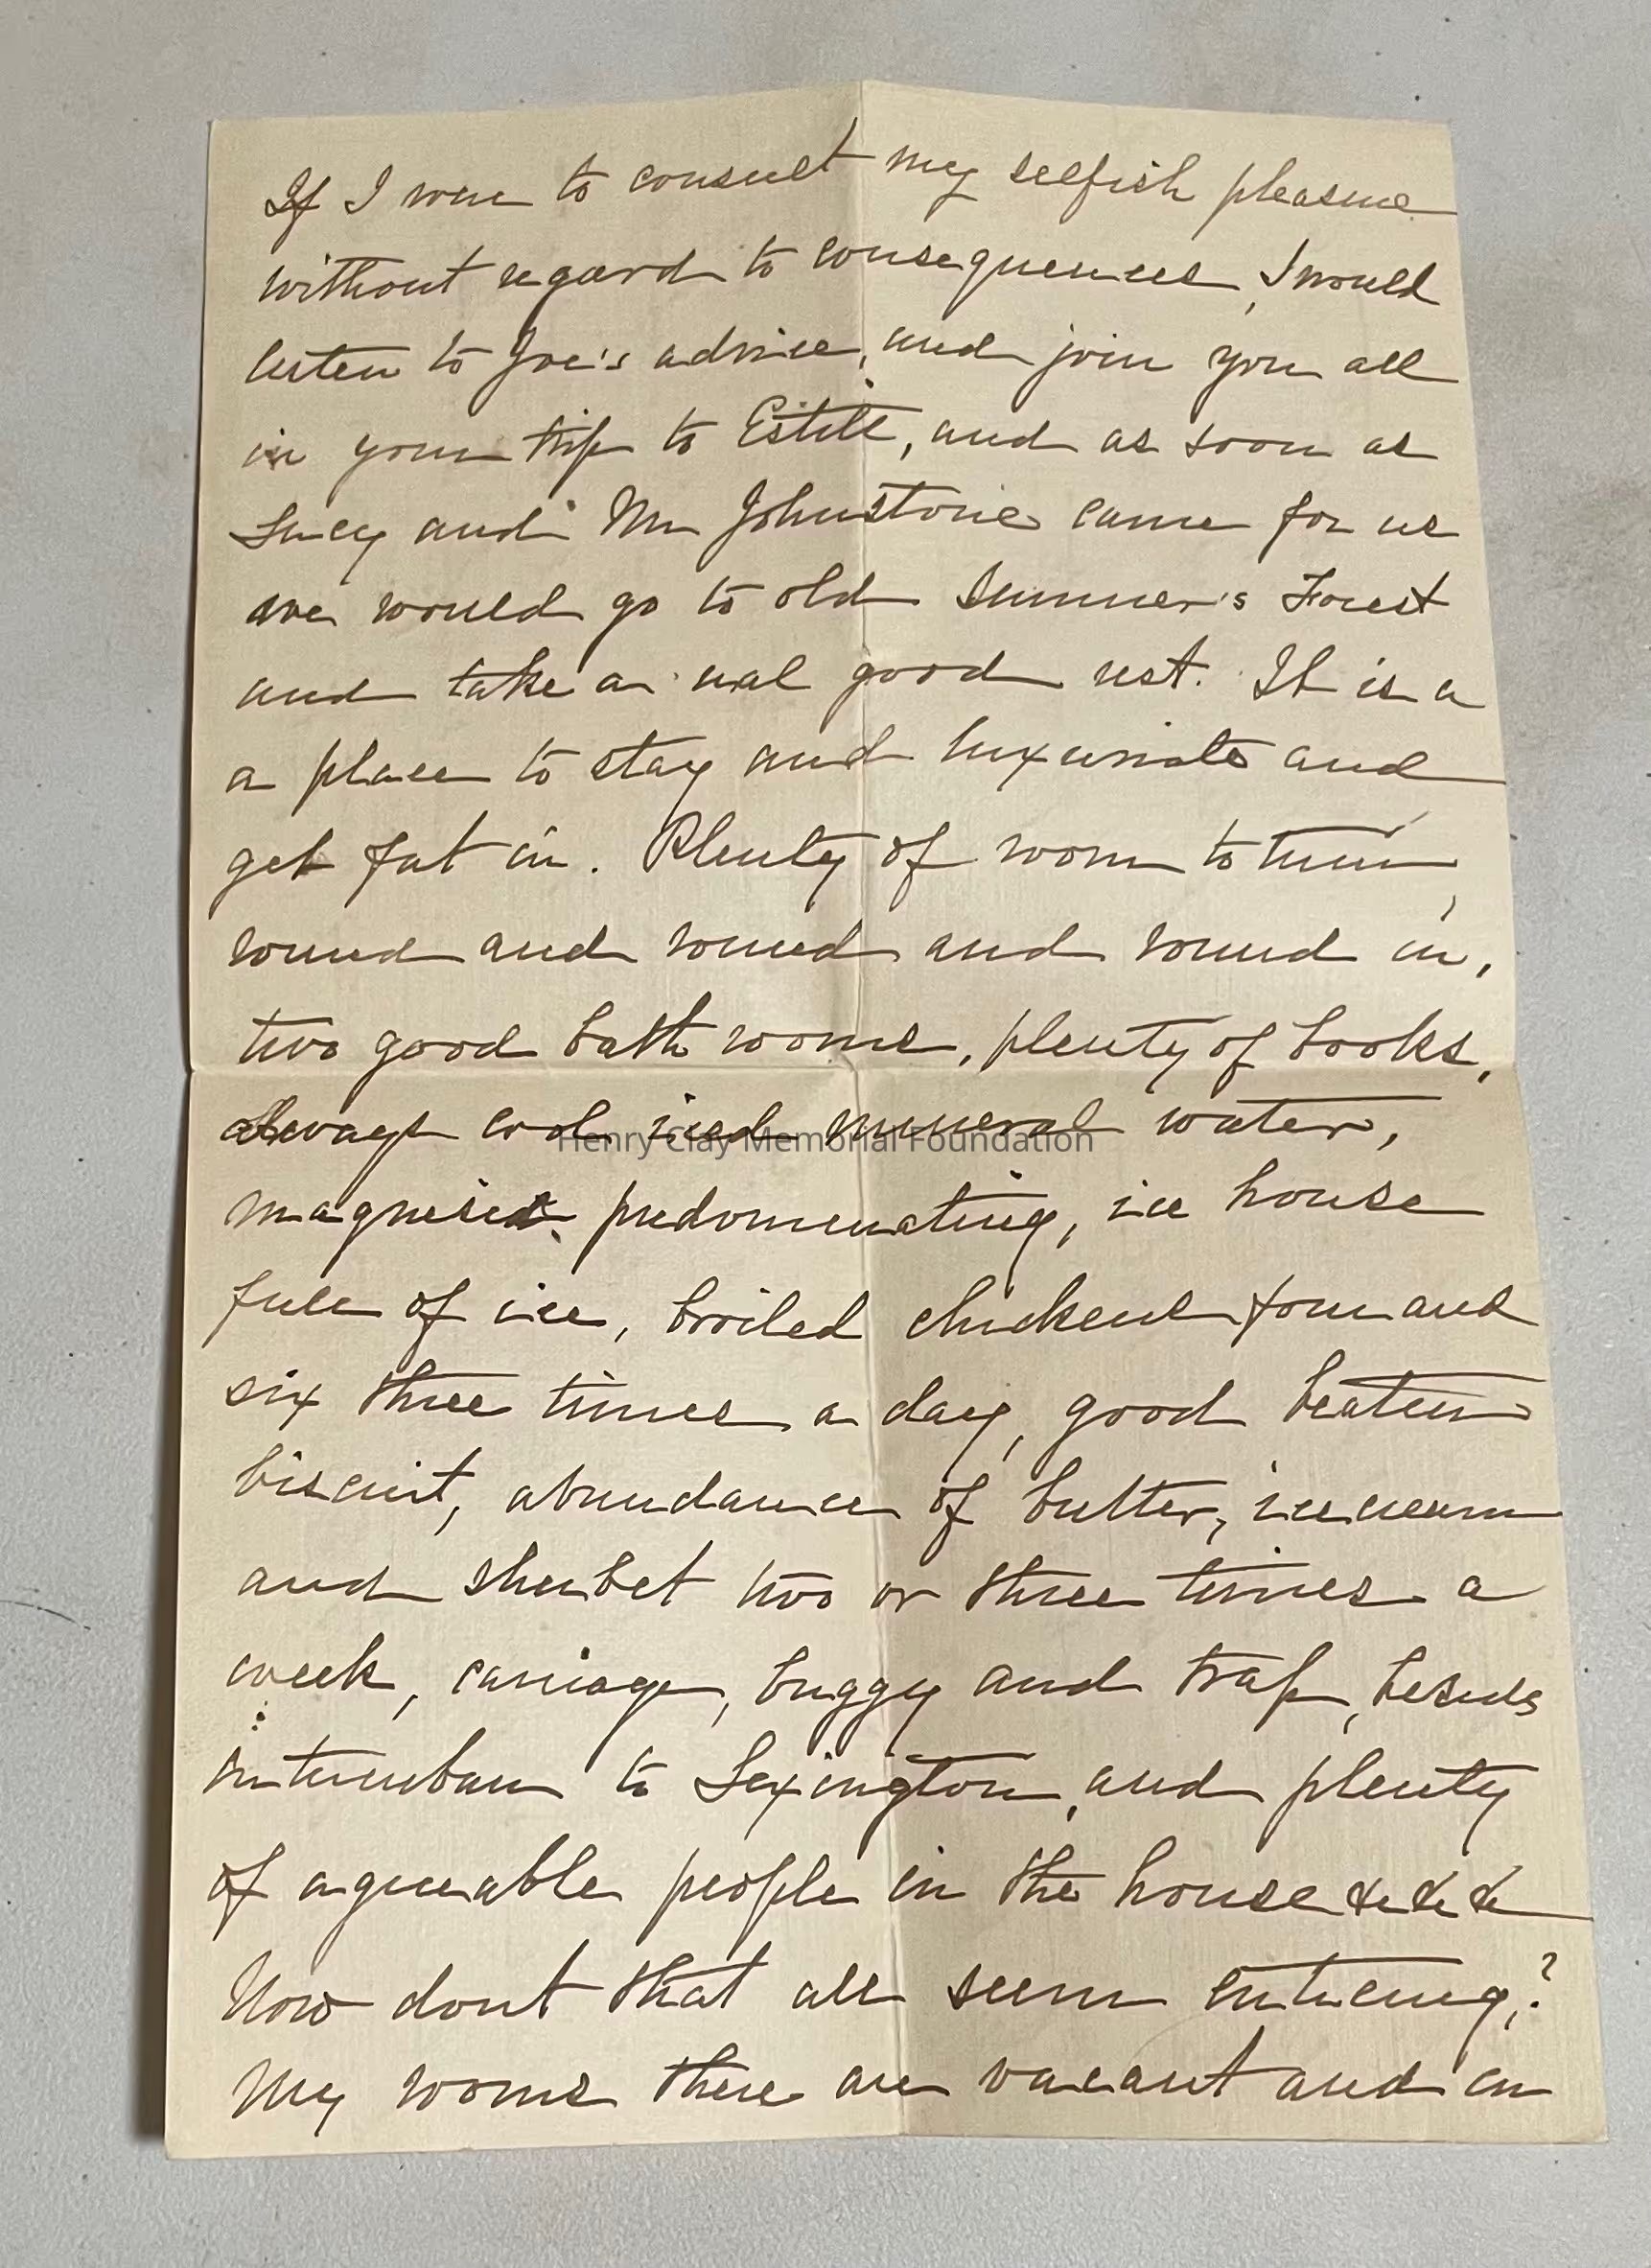 If I were to consult my selfish pleasure
without regard to consequences, I would
listen to Joe's advice, and join you all
in your trip to Estill, and as soon as
Lucy and Mr Johnstone came for us
we would go to old Sumner's Forest
and take a real good rest. It is a
a place to stay and luxuriate and
get fat in. Plenty of room to turn,
round and round and round in,
two good bath rooms, plenty of books,
always cool iced mineral water,
Henry Clay Memorial Foundation
magnesia predominating, ice house
full of ice, broiled chickens four and
six three times a day, good beaten
biscuit, abundance of butter, ice cream
and sherbet two or three times a
week, carriage, buggy and trap, besides
interurban to Lexington, and plenty
of agreeable people in the house &c &c &c
Now dont that all seem enticing?
My rooms there are vacant and in